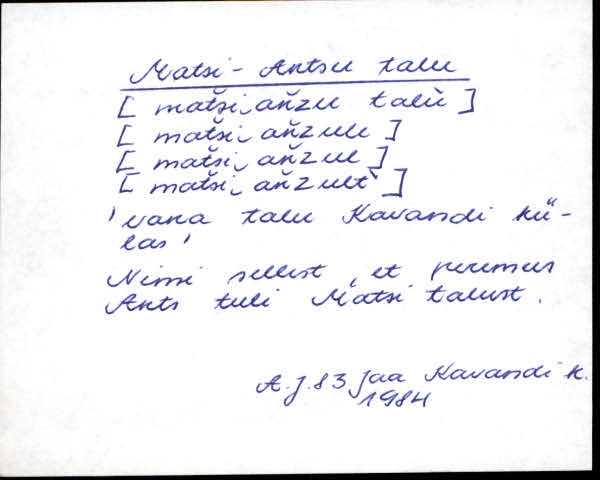 Matsi-Antsu talu
[ mat̆si‿ań̆zu talù ]
[ mat̆si‿ań̆zule ]
[ mat̆si‿ań̆zul ]
[ mat̆si‿ań̆zult` ]
'vana talu Kavandi kü-
las'
Nimi sellest, et peremees
Ants tuli Matsi talust.
A.J. 83 Jaa Kavandi k.
1984